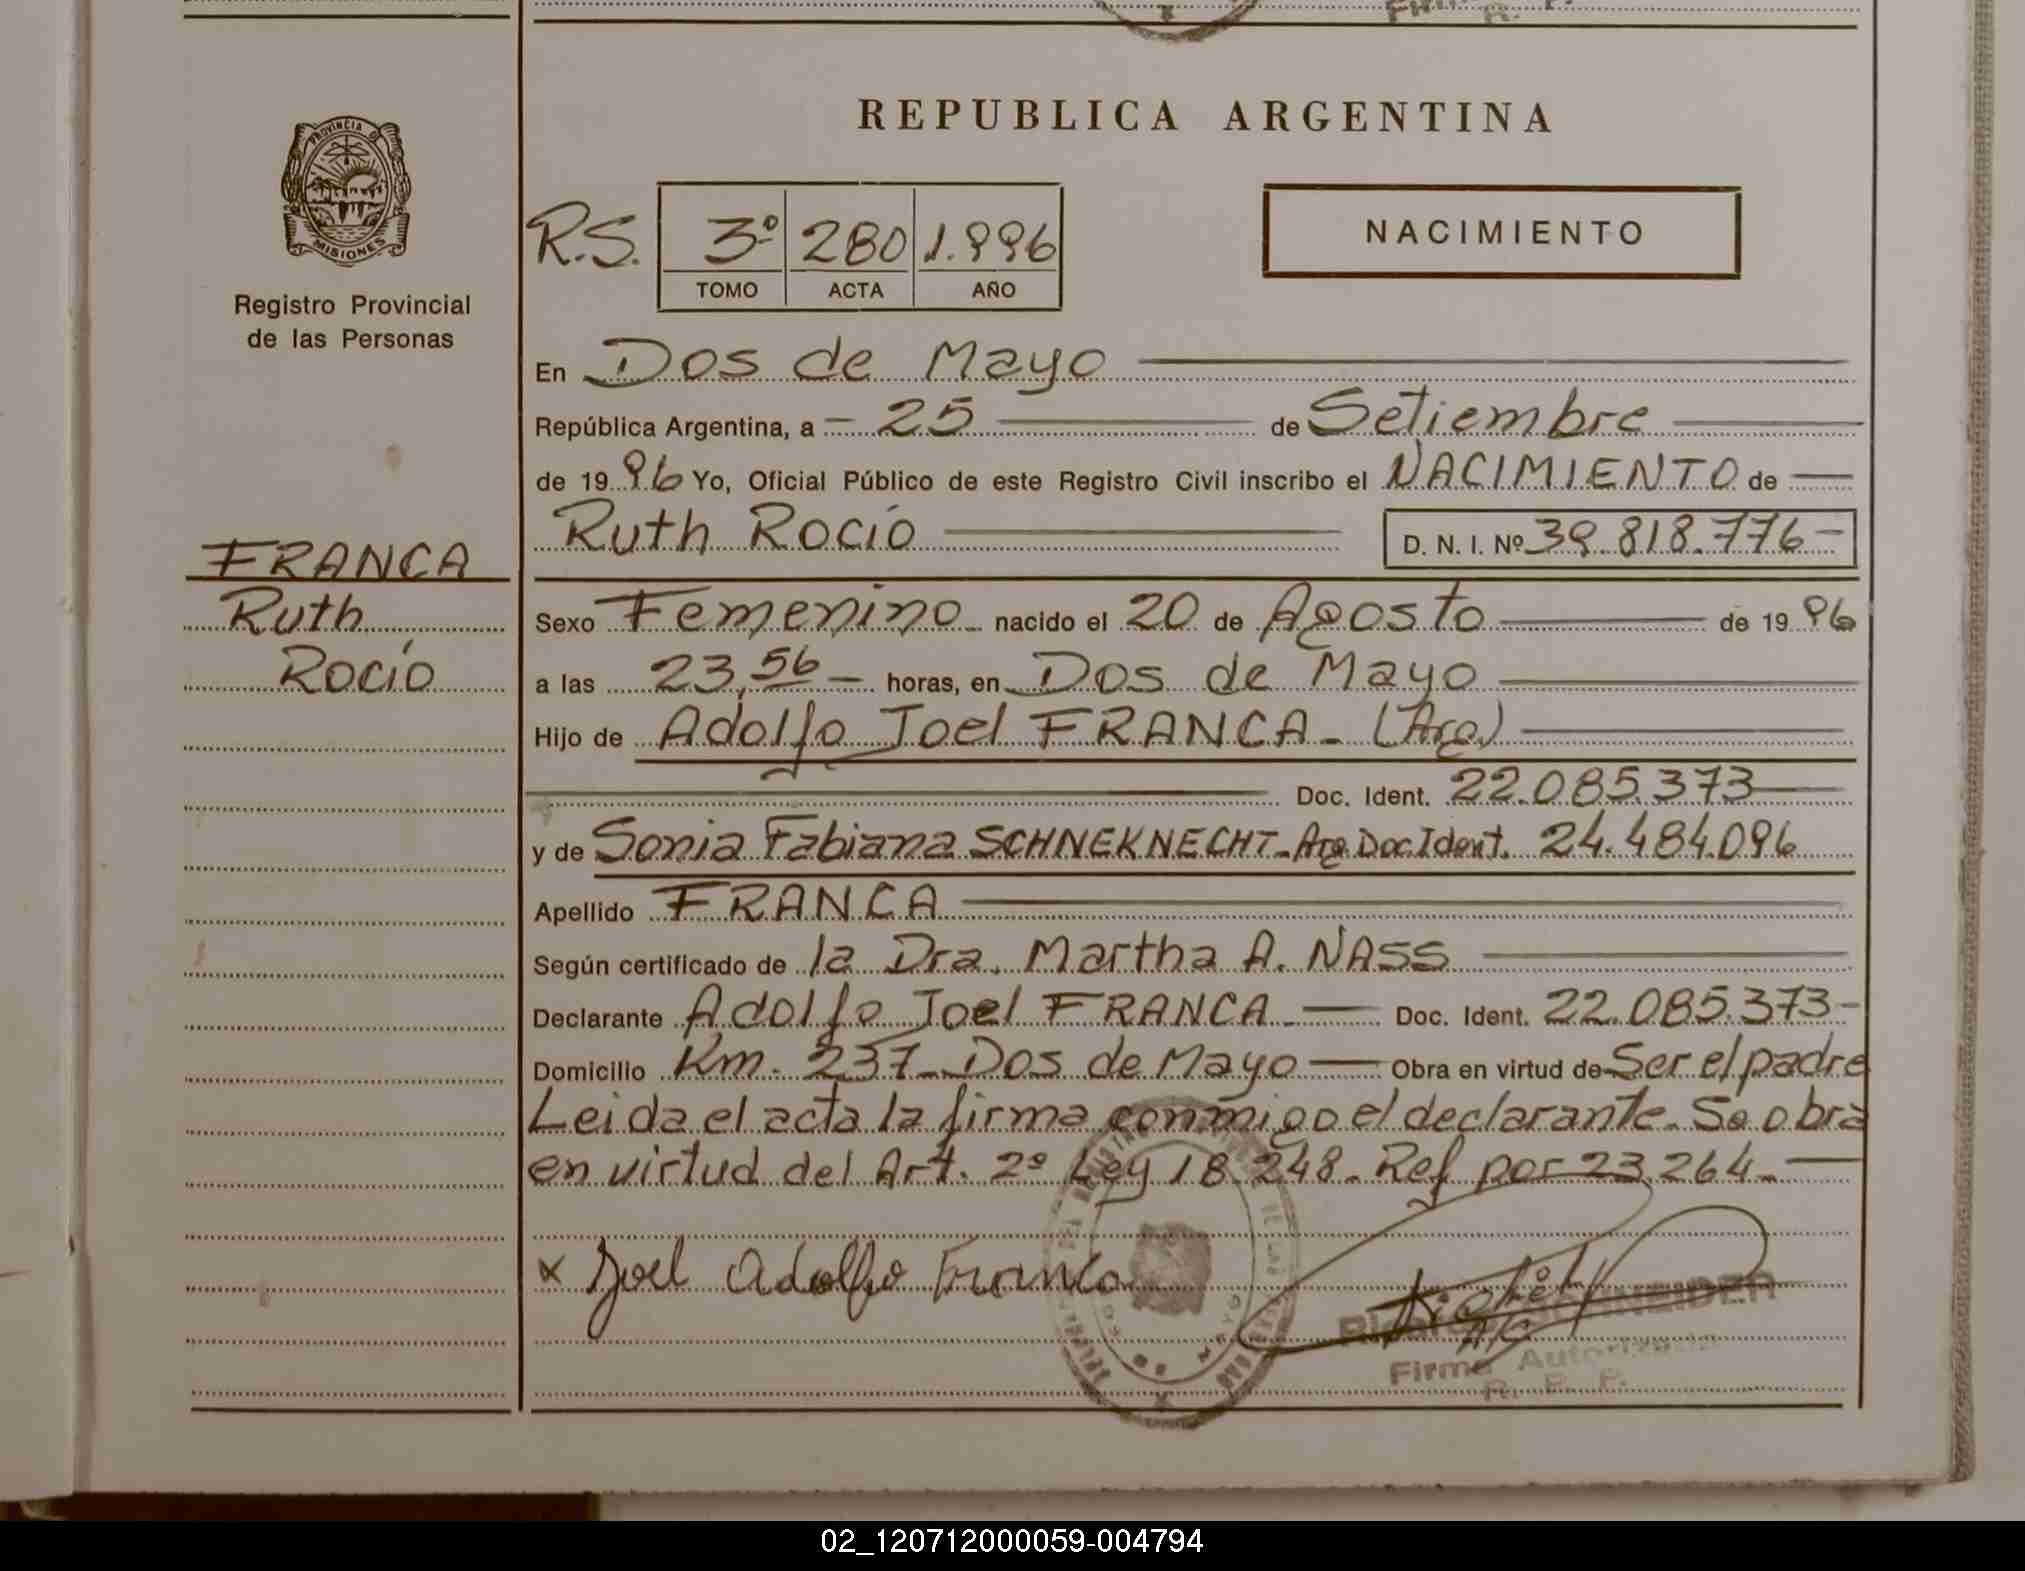 REPUBLICA ARGENTINA
PROVINCIA D
MISIONES
Registro Provincial
de las Personas
R.S. 3º 280 1.996
TOMO ACTA AÑO
NACIMIENTO
En Dos de Mayo
República Argentina, a 25 de Setiembre
de 1996 Yo, Oficial Público de este Registro Civil inscribo el NACIMIENTO de
Ruth Rocío D. N. I. Nº 39.818.776-
FRANCA
Ruth
Rocío
Sexo Femenino nacido el 20 de Agosto de 1996
a las 23,56 horas, en Dos de Mayo
Hijo de Adolfo Joel FRANCA - (Arg)
Doc. Ident. 22.085.373
y de Sonia Fabiana SCHNEKNECHT - Arg Doc Ident. 24.484.096
Apellido FRANCA
Según certificado de la Dra. Martha A. NASS
Declarante Adolfo Joel FRANCA - Doc. Ident. 22.085.373-
Domicilio Km. 237 - Dos de Mayo Obra en virtud de Ser el padre
Leida el acta la firma conmigo el declarante. Se obra
en virtud del Art. 2º Ley 18.248. Ref por 23.264.-
x Joel Adolfo Franca
SCHNEIDER
Firma Autorizada
R. P. P.
02_120712000059-004794